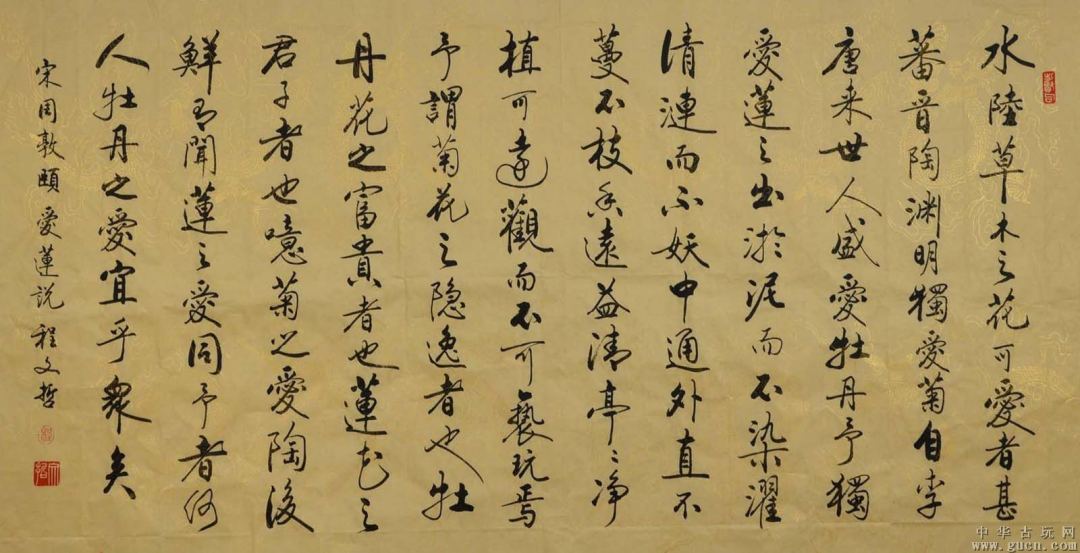 水陸草木之花可愛者甚
蕃晉陶渊明獨愛菊自李
唐来世人盛愛牡丹予獨
愛蓮之出淤泥而不染濯
清漣而不妖中通外直不
蔓不枝香遠益清亭〻净
植可遠觀而不可褻玩焉
予謂菊花之隐逸者也牡
丹花之富貴者也蓮花之
君子者也噫菊之愛陶後
鮮有聞蓮之愛同予者何
人牡丹之愛宜乎衆矣
宋周敦頤愛蓮説程文哲
中华古玩网
www.gucn.com